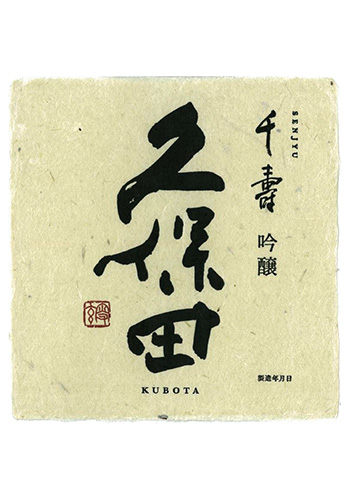 SENJYU
千壽
吟醸
久保田
KUBOTA
製造年月日